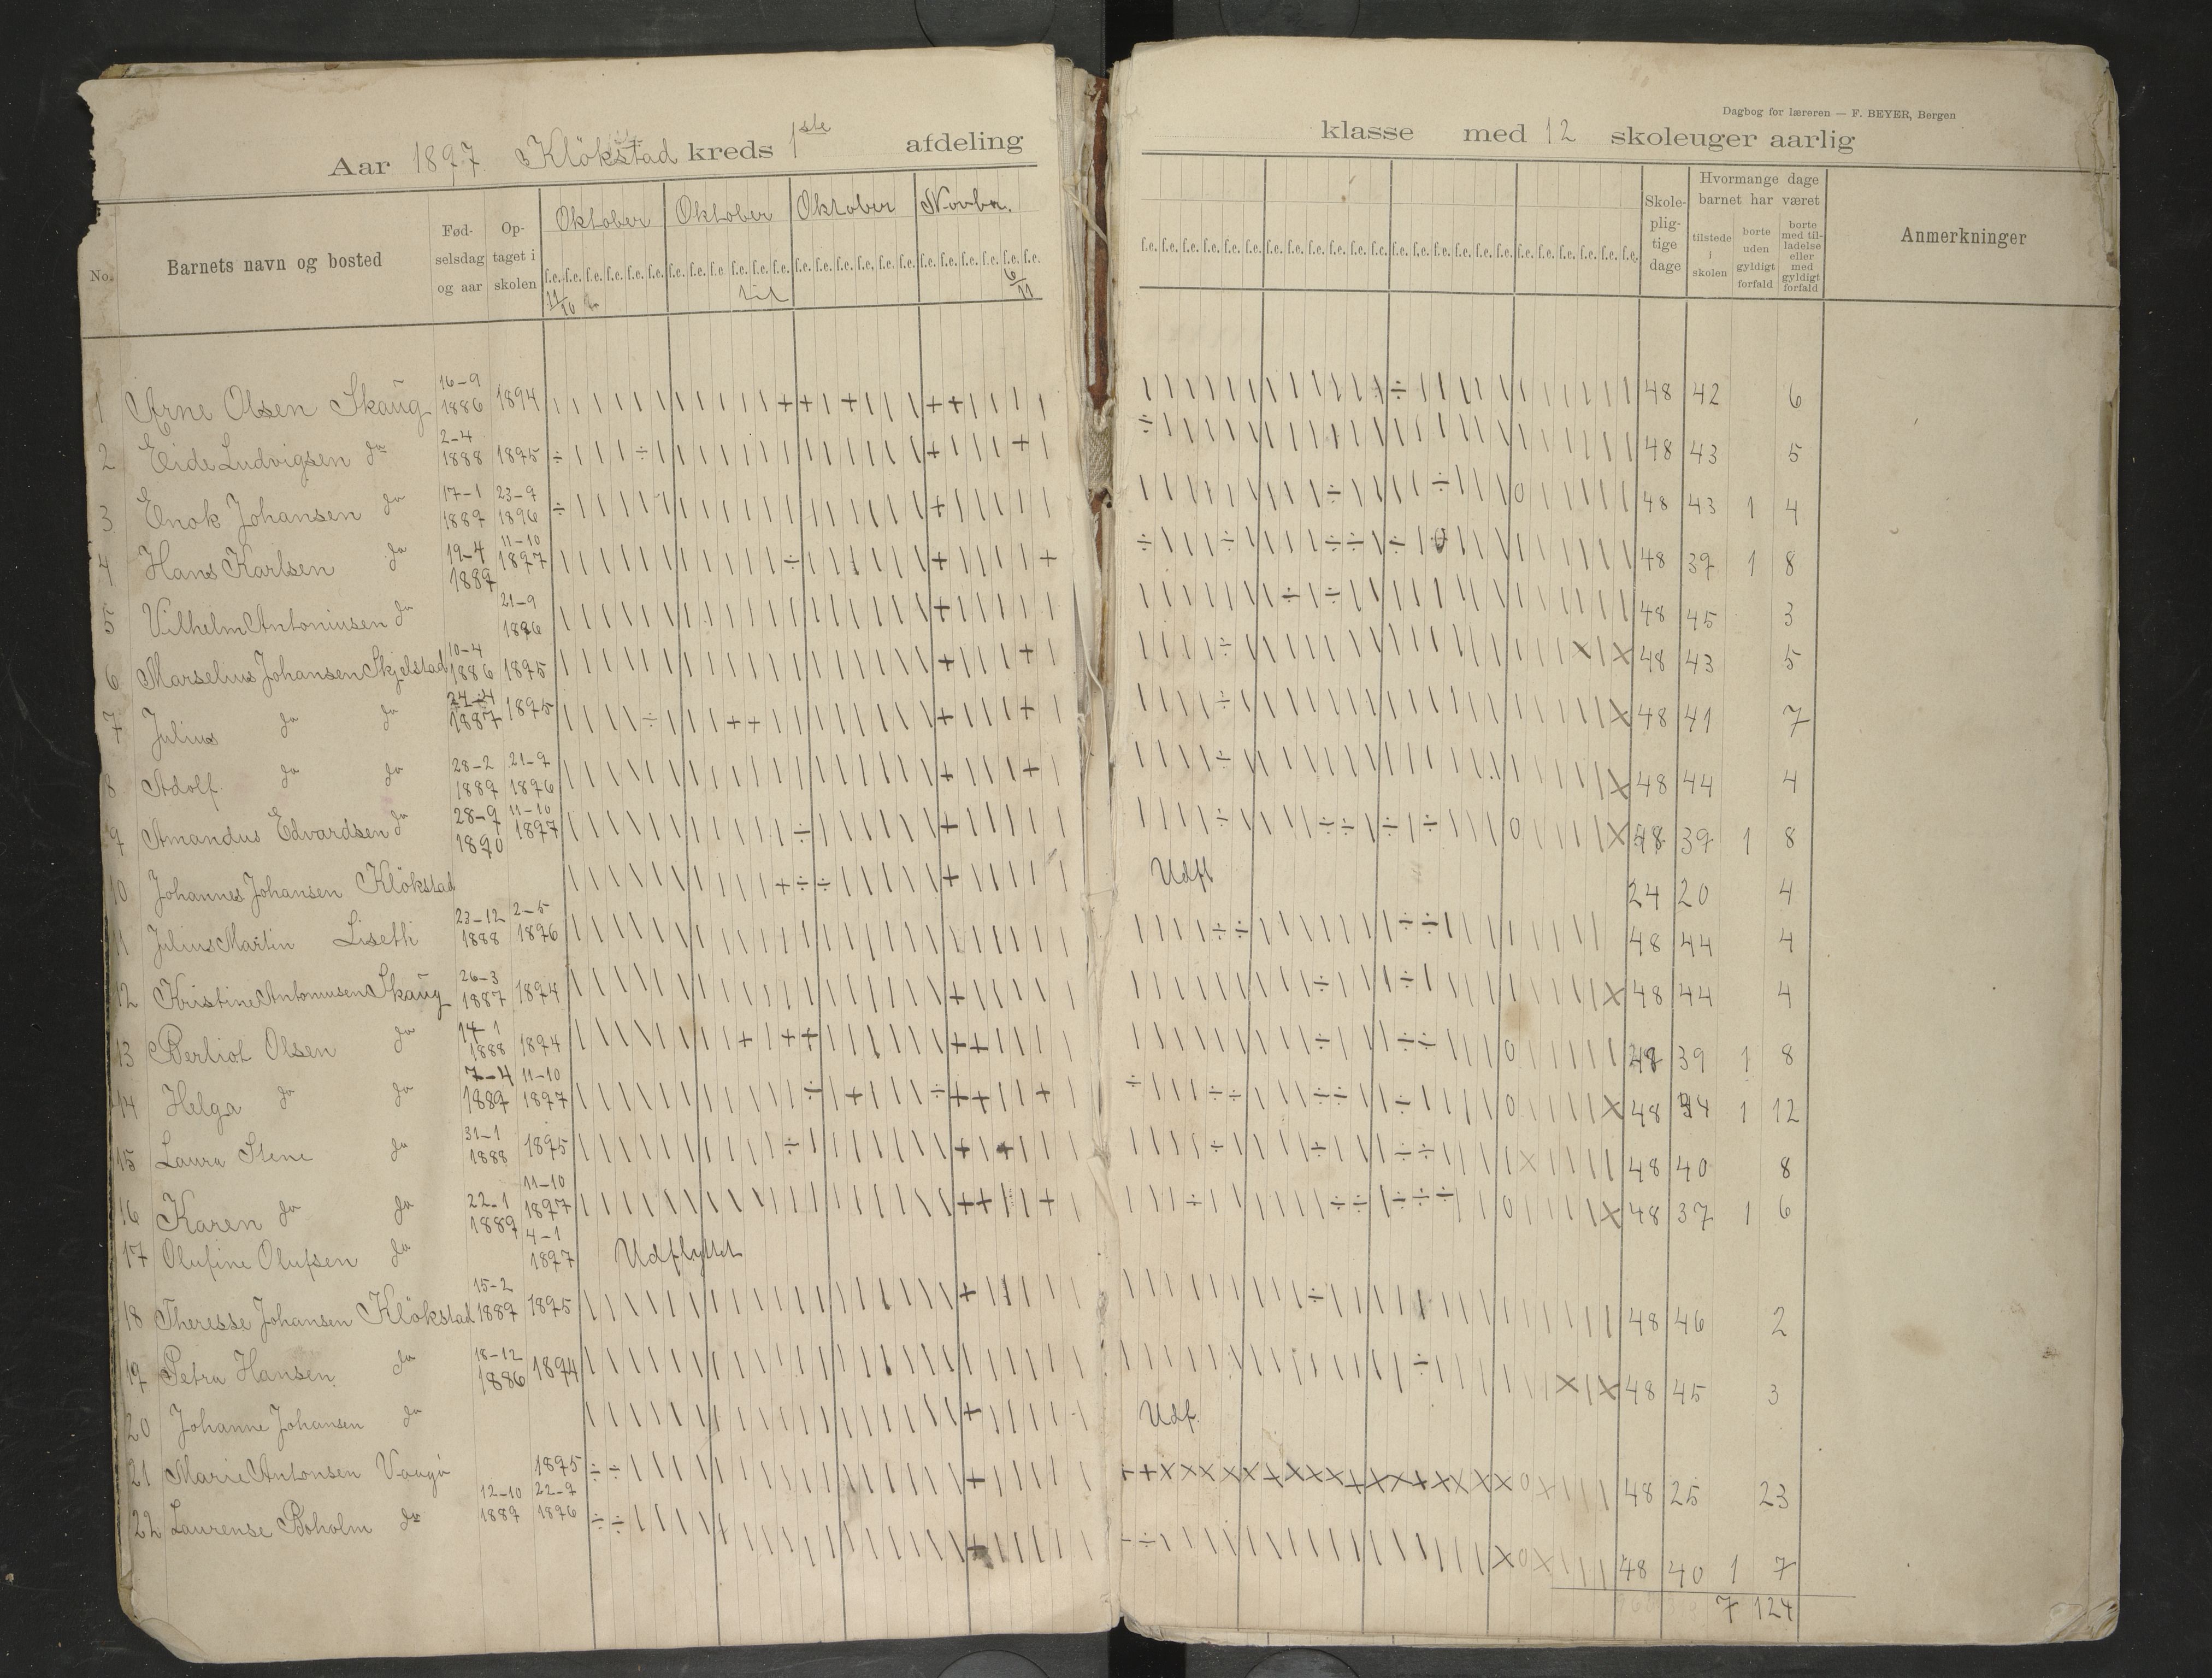 Dagbog for læreren — F. BEYER, Bergen
Aar 1897 Klökstad kreds 1ste afdeling
klasse med 12 skoleuger aarlig
No. Barnets navn og bosted Fød-selsdag og aar Op-taget i skolen Oktober Oktober Oktober Novbr.
f.e. f.e. f.e. f.e. f.e. f.e. f.e. f.e. f.e. f.e. f.e. f.e. f.e. f.e. f.e. f.e. f.e. f.e. f.e. f.e. f.e. f.e. f.e. f.e.
11/10 til 6/11
f.e. f.e. f.e. f.e. f.e. f.e. f.e. f.e. f.e. f.e. f.e. f.e. f.e. f.e. f.e. f.e. f.e. f.e. f.e. f.e. f.e. f.e. f.e. f.e.
Skole-plig-tige dage
Hvormange dage barnet har været
tilstede i skolen
borte uden gyldigt forfald
borte med til-ladelse eller med gyldigt forfald
Anmerkninger
1 Arne Olsen Skaug 16-9 1886 1894 48 42 6
2 Eide Ludvigsen do 2-4 1888 1895 48 43 5
3 Enok Johansen do 17-1 1889 23-9 1896 48 43 1 4
4 Hans Karlsen do 19-4 1889 11-10 1897 48 39 1 8
5 Vilhelm Antoniusen do 21-9 1896 48 45 3
6 Marselius Johansen Skjelstad 10-4 1886 1895 48 43 5
7 Julius do do 24-4 1887 1895 48 41 7
8 Adolf do do 28-2 1889 21-9 1896 48 44 4
9 Amandus Edvardsen do 28-9 1890 11-10 1897 48 39 1 8
10 Johannes Johansen Klökstad Udfl 24 20 4
11 Julius Martin Liseth 23-12 1888 2-5 1896 48 44 4
12 Kristine Antoniusen Skaug 26-3 1887 1894 48 44 4
13 Berliot Olsen do 14-1 1888 1894 48 39 1 8
14 Helga do do 7-4 1889 11-10 1897 48 34 1 12
15 Laura Stene do 31-1 1888 1895 48 40 8
16 Karen do do 22-1 1889 11-10 1897 48 37 1 6
17 Olufine Olufsen do 4-1 1897 Udflyttet
18 Theresse Johansen Klökstad 15-2 1889 1895 48 46 2
19 Petra Hansen do 18-12 1886 1894 48 45 3
20 Johanne Johansen do Udf.
21 Marie Antonsen Vaagö 1895 48 25 23
22 Laurense Boholm do 12-10 1889 22-9 1896 48 40 1 7
7 124